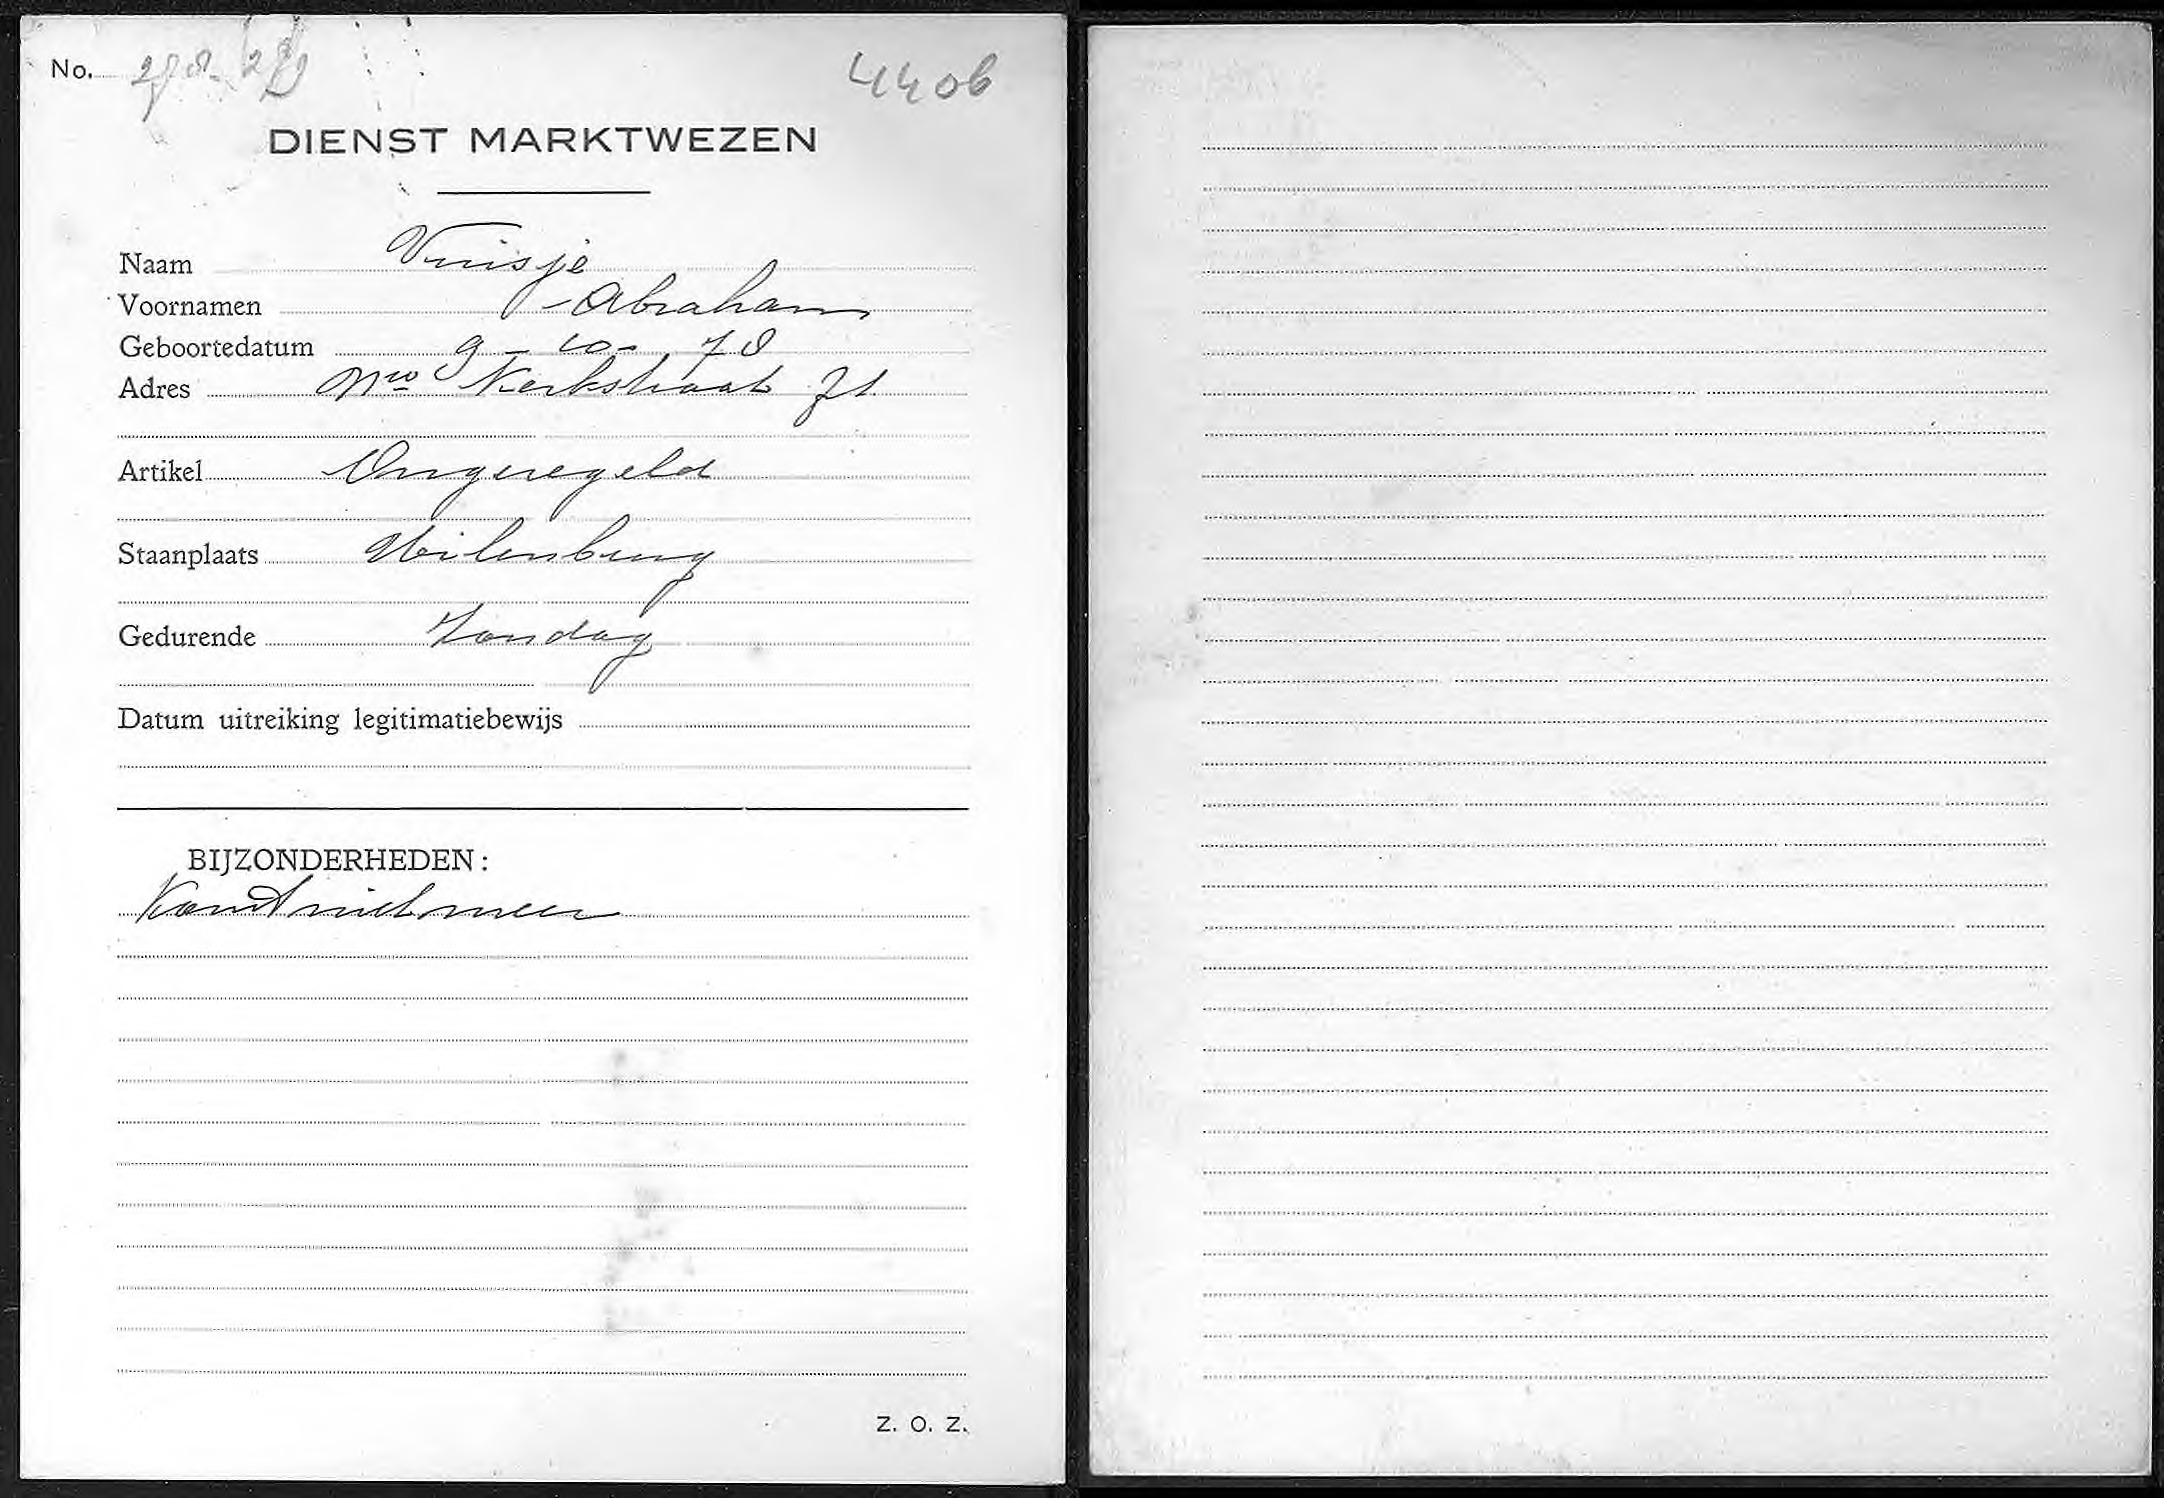 No.
4406
DIENST MARKTWEZEN
Naam Vuisje
Voornamen Abraham
Geboortedatum 9-10-78
Adres Nw Kerkstraat
Artikel Ongeregeld
Staanplaats Uilenburg
Gedurende Zondag
Datum uitreiking legitimatiebewijs
BIJZONDERHEDEN:
Komt niet meer
Z. O. Z.